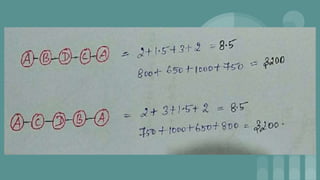 A-B-D-C-A = 2+1.5+3+2 = 8.5
800+650+1000+750 = 3200
A-C-D-B-A = 2+3+1.5+2 = 8.5
750+1000+650+800 = 3200.